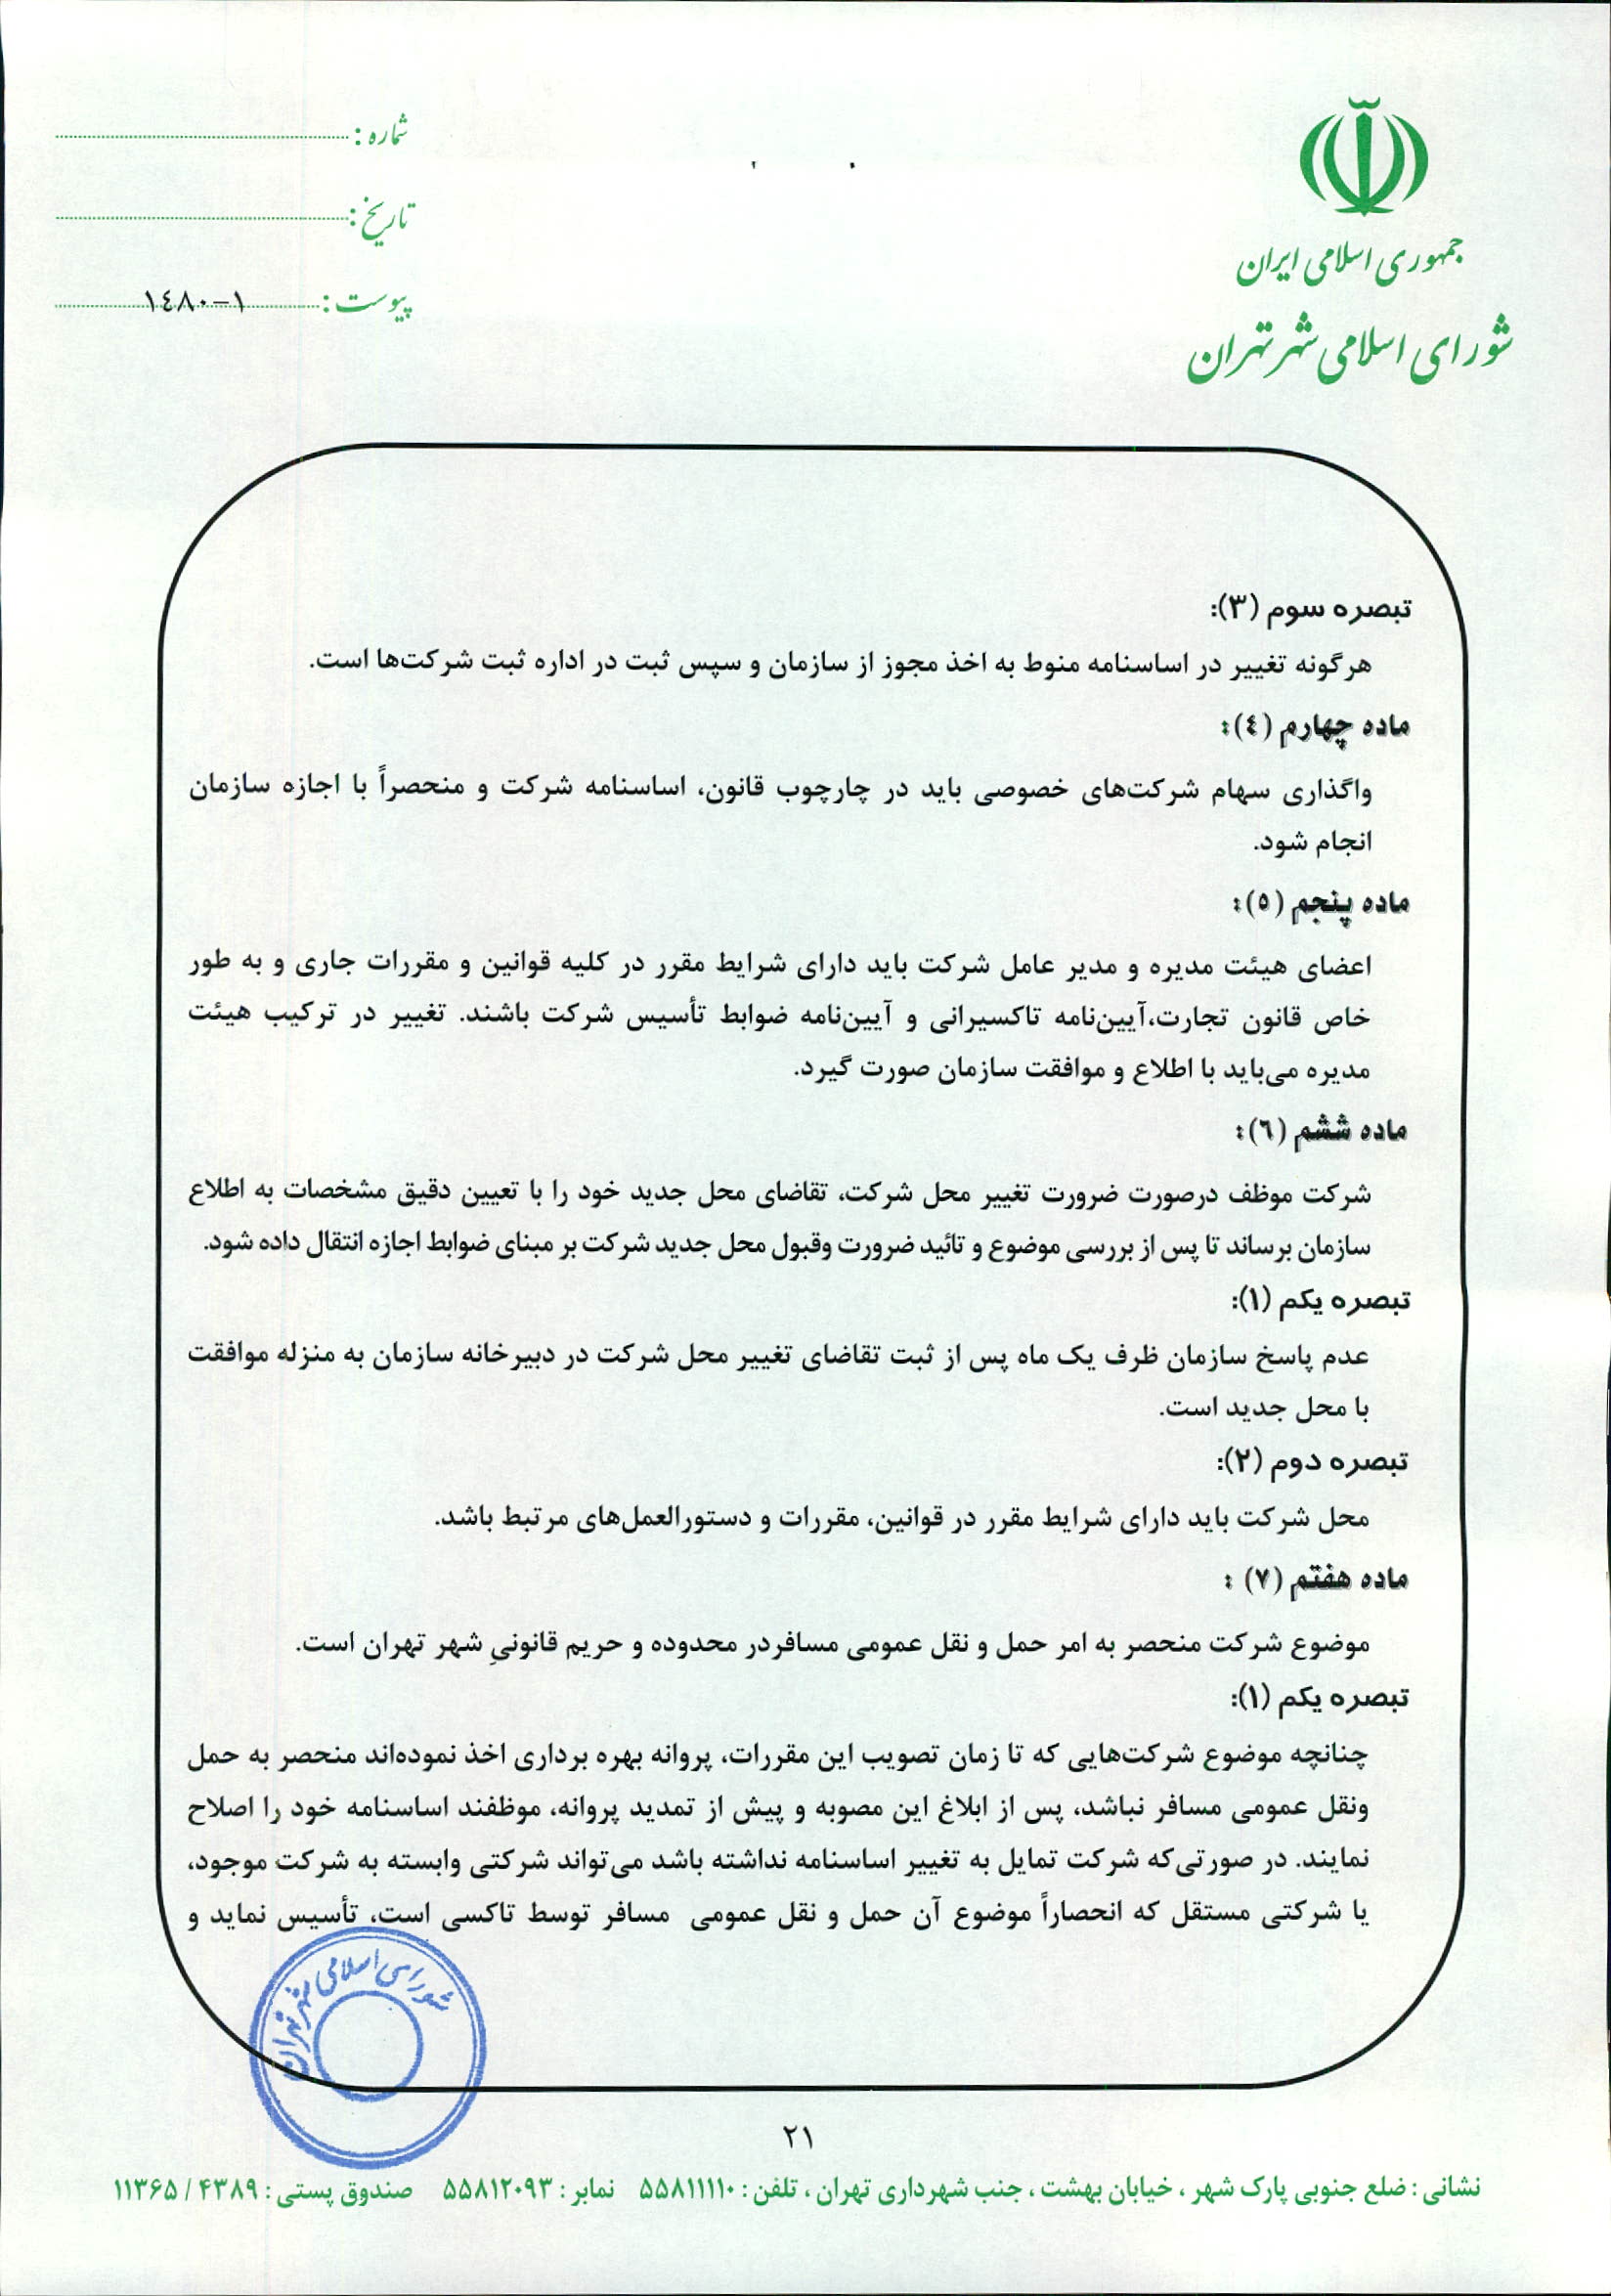 جمهوری اسلامی ایران
شورای اسلامی شهر تهران
شماره :
تاریخ :
پیوست : ١٤٨٠-١
تبصره سوم (۳):
هرگونه تغییر در اساسنامه منوط به اخذ مجوز از سازمان و سپس ثبت در اداره ثبت شرکت‌ها است.
ماده چهارم (٤):
واگذاری سهام شرکت‌های خصوصی باید در چارچوب قانون، اساسنامه شرکت و منحصراً با اجازه سازمان
انجام شود.
ماده پنجم (٥):
اعضای هیئت مدیره و مدیر عامل شرکت باید دارای شرایط مقرر در کلیه قوانین و مقررات جاری و به طور
خاص قانون تجارت،آیین‌نامه تاکسیرانی و آیین‌نامه ضوابط تأسیس شرکت باشند. تغییر در ترکیب هیئت
مدیره می‌باید با اطلاع و موافقت سازمان صورت گیرد.
ماده ششم (٦):
شرکت موظف درصورت ضرورت تغییر محل شرکت، تقاضای محل جدید خود را با تعیین دقیق مشخصات به اطلاع
سازمان برساند تا پس از بررسی موضوع و تائید ضرورت وقبول محل جدید شرکت بر مبنای ضوابط اجازه انتقال داده شود.
تبصره یکم (۱):
عدم پاسخ سازمان ظرف یک ماه پس از ثبت تقاضای تغییر محل شرکت در دبیرخانه سازمان به منزله موافقت
با محل جدید است.
تبصره دوم (۲):
محل شرکت باید دارای شرایط مقرر در قوانین، مقررات و دستورالعمل‌های مرتبط باشد.
ماده هفتم (۷) :
موضوع شرکت منحصر به امر حمل و نقل عمومی مسافردر محدوده و حریم قانونیِ شهر تهران است.
تبصره یکم (۱):
چنانچه موضوع شرکت‌هایی که تا زمان تصویب این مقررات، پروانه بهره برداری اخذ نموده‌اند منحصر به حمل
ونقل عمومی مسافر نباشد، پس از ابلاغ این مصوبه و پیش از تمدید پروانه، موظفند اساسنامه خود را اصلاح
نمایند. در صورتی‌که شرکت تمایل به تغییر اساسنامه نداشته باشد می‌تواند شرکتی وابسته به شرکت موجود،
یا شرکتی مستقل که انحصاراً موضوع آن حمل و نقل عمومی مسافر توسط تاکسی است، تأسیس نماید و
شورای اسلامی شهر تهران
۲۱
نشانی : ضلع جنوبی پارک شهر ، خیابان بهشت ، جنب شهرداری تهران ، تلفن : ۵۵۸۱۱۱۱۰ نمابر : ۵۵۸۱۲۰۹۳ صندوق پستی : ۴۳۸۹ / ۱۱۳۶۵